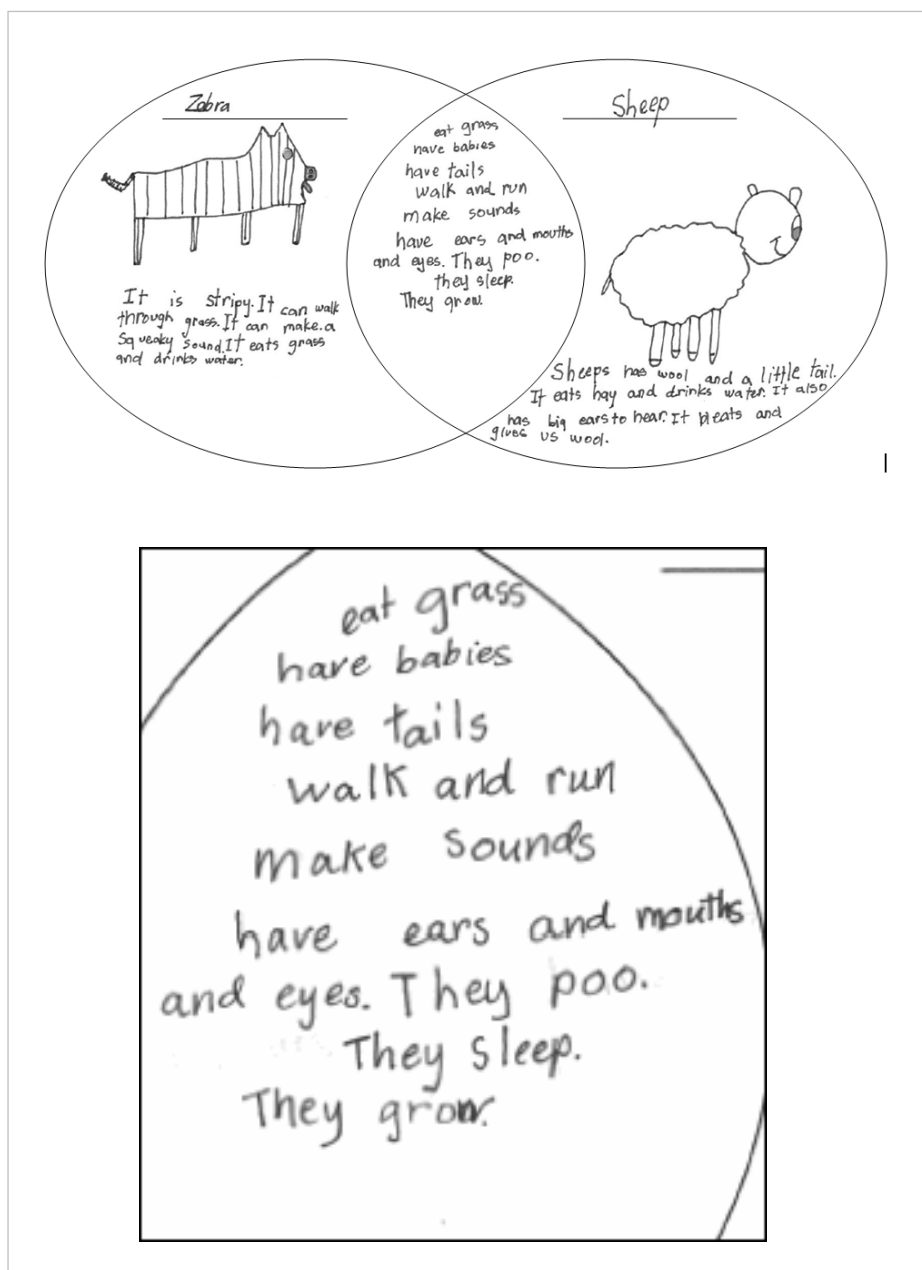 Zebra
It is stripy. It can walk
through grass. It can make. a
Squeaky sound. It eats grass
and drinks water.
eat grass
have babies
have tails
walk and run
make sounds
have ears and mouths
and eyes. They poo.
they sleep.
They grow.
Sheep
Sheeps has wool and a little tail.
It eats hay and drinks water. It also
has big ears to hear. It bleats and
gives us wool.
eat grass
have babies
have tails
walk and run
make sounds
have ears and mouths
and eyes. They poo.
They sleep.
They grow.